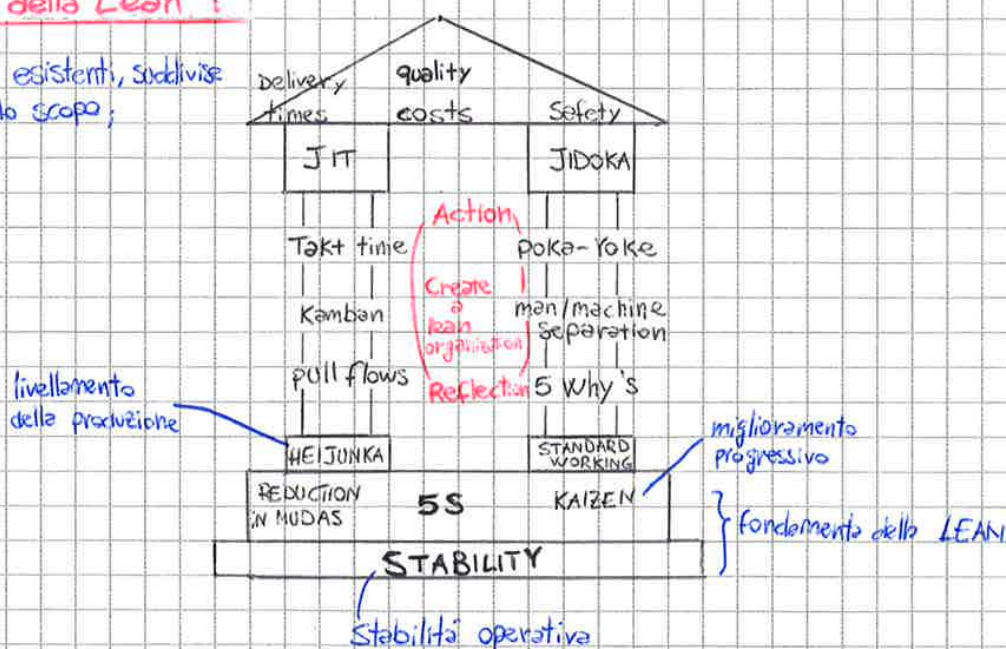 della Lean :
esistenti, suddivise
lo scopo;
Delivery
times
quality
costs
Safety
JIT
JIDOKA
Takt time
Kamban
pull flows
Action
Create
a
lean
organisation
Reflection
poka-Yoke
man/machine
separation
5 Why's
livellamento
della produzione
HEIJUNKA
STANDARD
WORKING
miglioramento
progressivo
REDUCTION
IN MUDAS
5S
KAIZEN
fondamenta della LEAN
STABILITY
Stabilità operativa